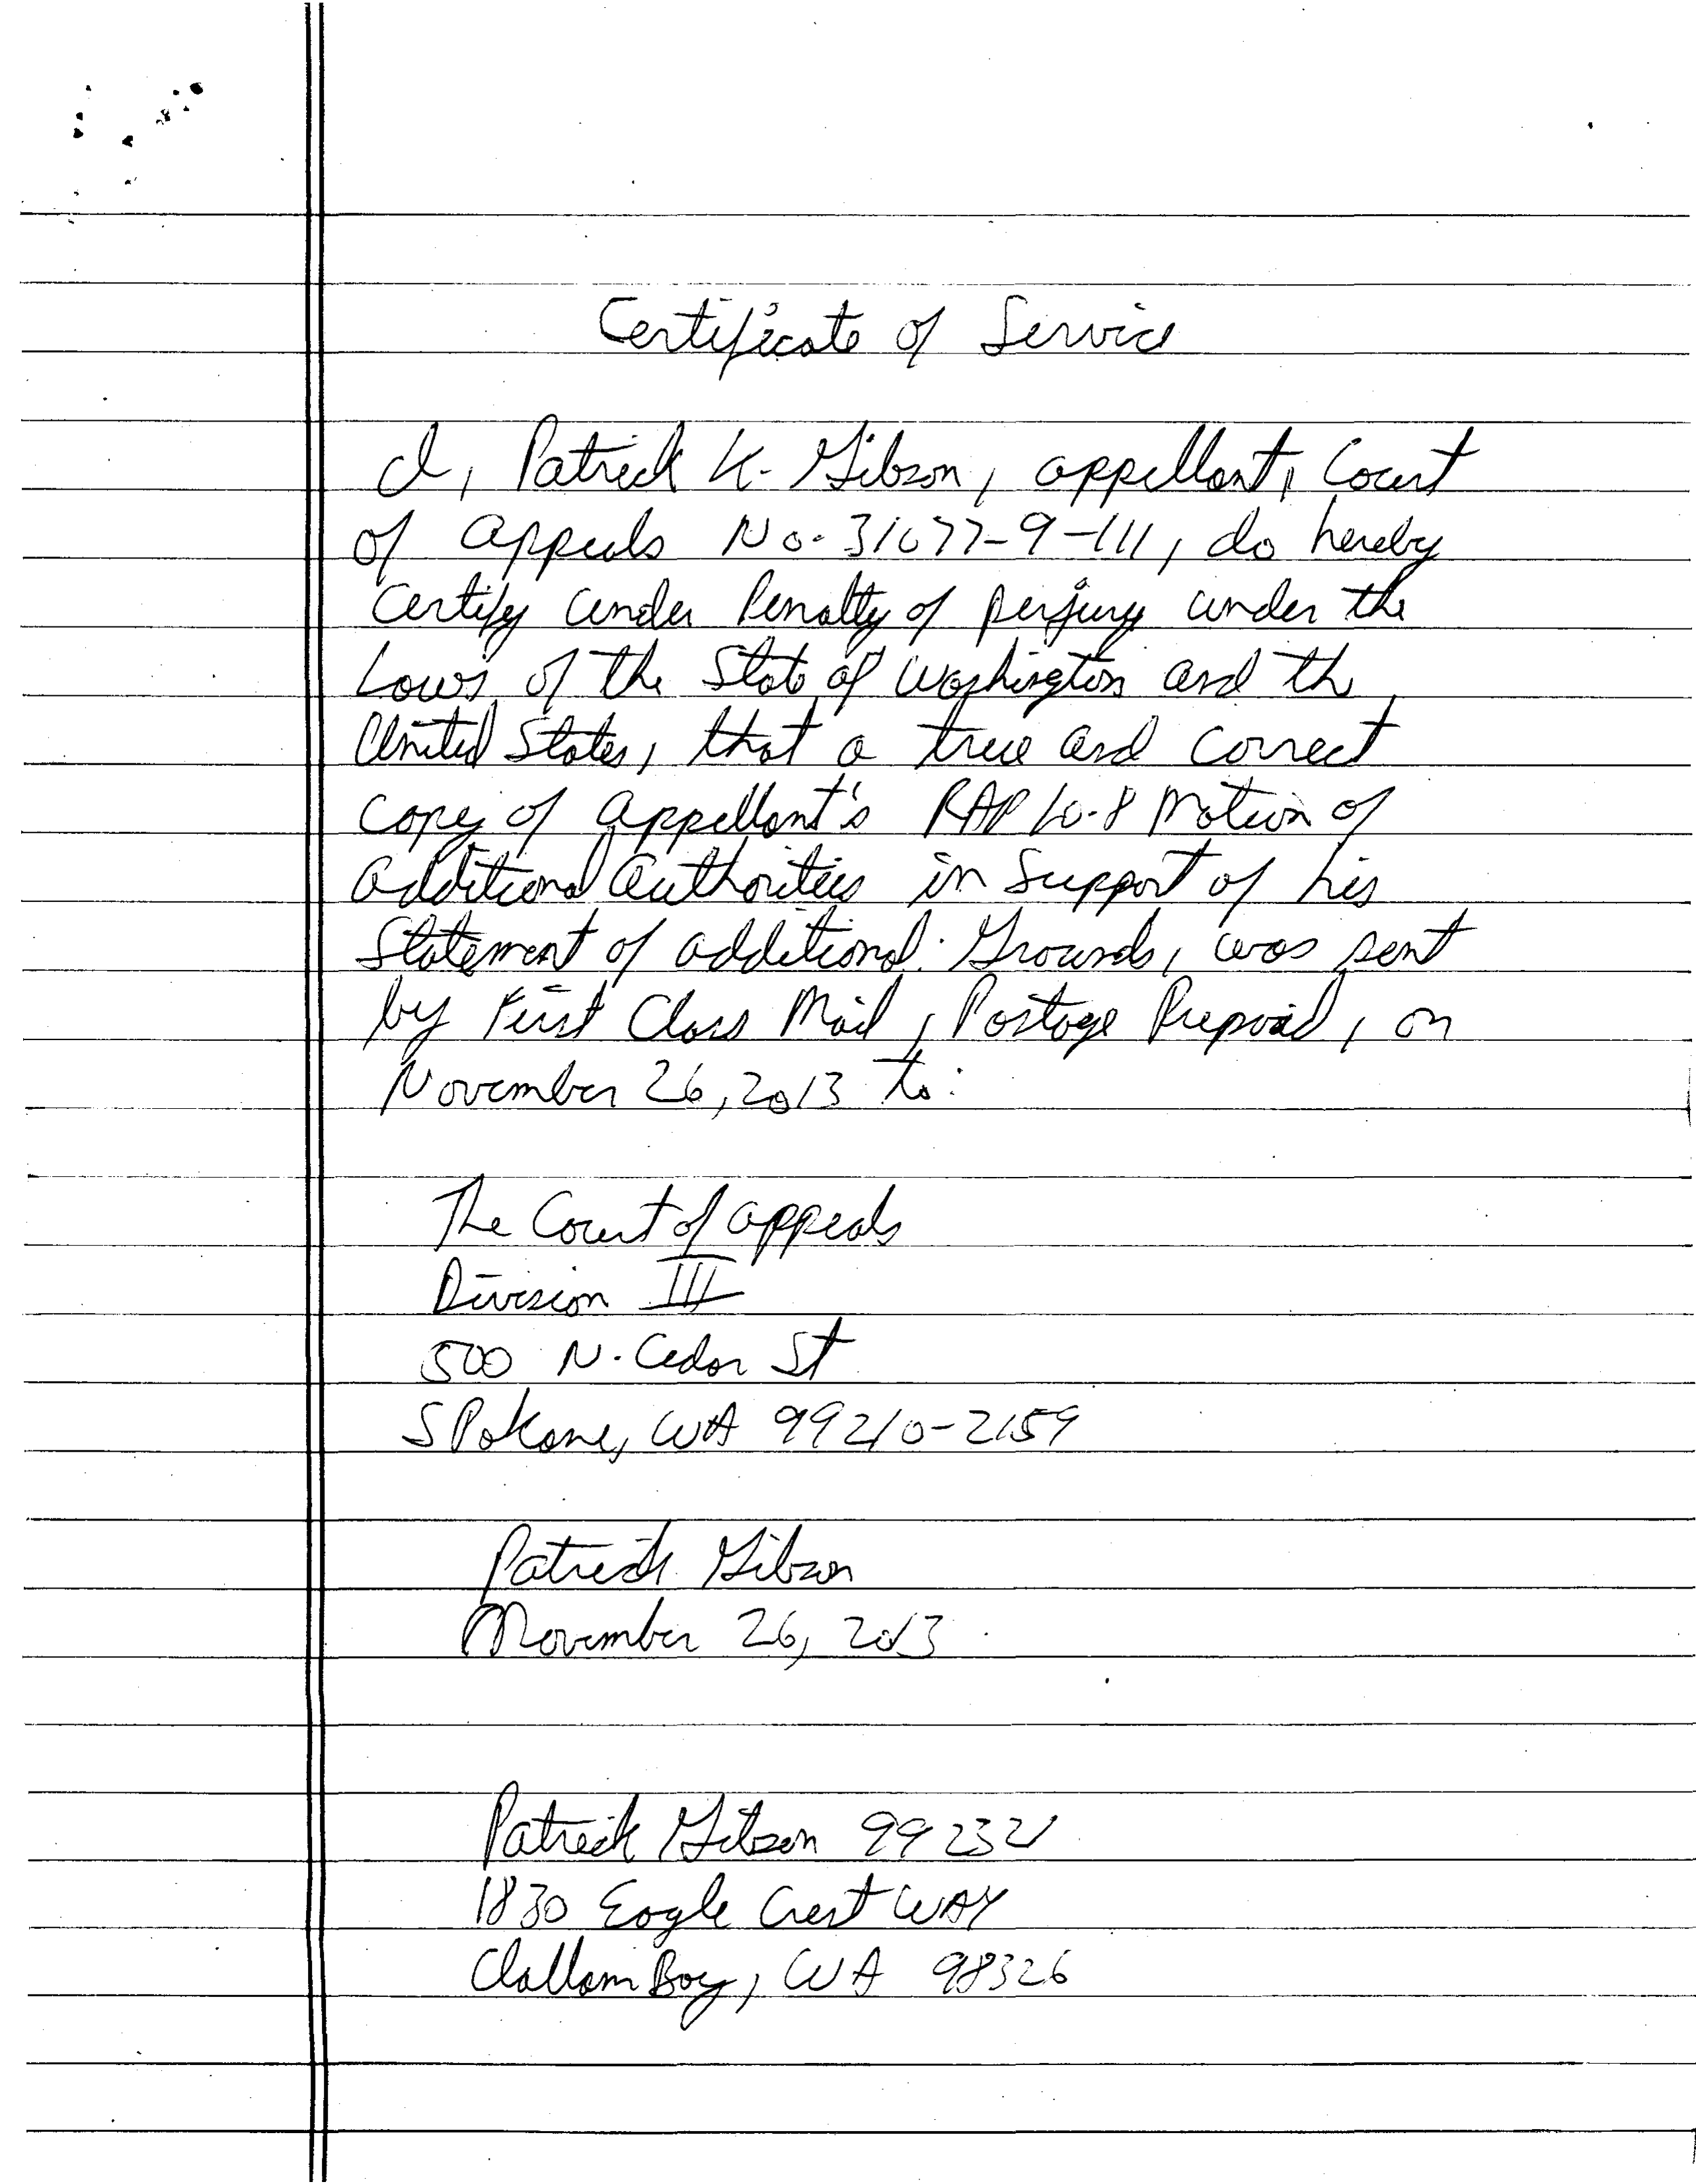 Certificate of Service
I, Patrick K. Gibson, appellant, Court
of appeals No. 31077-9-111, do hereby
Certify under Penalty of perjury under the
Laws of the State of Washington and the
United States, that a true and correct
copy of appellant's RAP 10.8 Motion of
additional authorities in Support of his
Statement of additional Grounds, was sent
by First Class Mail, Postage Prepaid, on
November 26, 2013 to:
The Court of appeals
Division III
500 N. Cedar St
Spokane, WA 99210-2159
Patrick Gibson
November 26, 2013
Patrick Gibson 992321
1830 Eagle Crest WAY
Clallam Bay, WA 98326